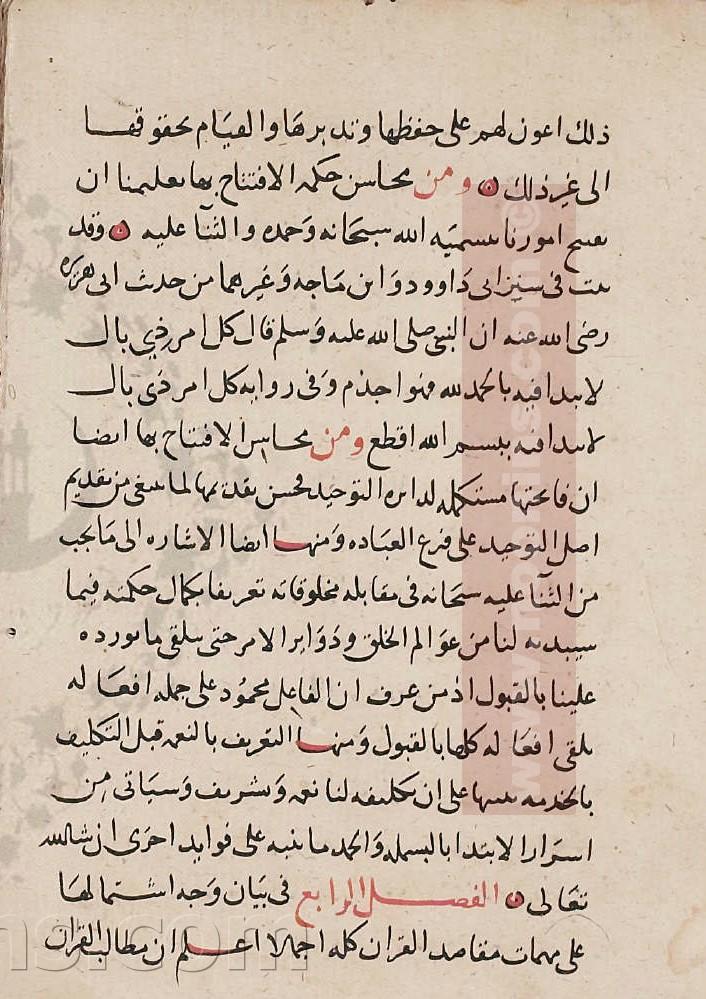 ذلك اعون لهم على حفظها وتدبرها والقيام بحقوقها
الى غير ذلك ومن محاسن حكمه الافتتاح بها تعليمنا ان
نفتتح امورنا بتسميه الله سبحانه وحمده والثنآ عليه وقد
ثبت في سنن ابى داوود وابن ماجه وغيرهما من حديث ابى هريره
رضى الله عنه ان النبي صلى الله عليه وسلم قال كل امر ذي بال
لا يبدا فيه بالحمد لله فهو اجذم وفى روايه كل امر ذى بال
لا يبدا فيه ببسم الله اقطع ومن محاسن الافتتاح بها ايضا
ان فاتحتها مستكمله لدايره التوحيد فحسن تقديمها لما ينبغى من تقديم
اصل التوحيد على فرع العباده ومنها ايضا الاشاره الى ما يجب
من الثنآ عليه سبحانه فى مقابله مخلوقاته تعريفا بكمال حكمته فيما
سيبديه لنا من عوالم الخلق ودواير الامر حتى نتلقى ما يورده
علينا بالقبول اذ من عرف ان الفاعل محمود على جمله افعاله
تلقى افعاله كلها بالقبول ومنها التعريف بالنعمه قبل التكليف
بالخدمه تنبيها على ان تكليفه لنا نعمه وتشريف وسياتى من
اسرار الابتدا بالبسمله والحمد ما ننبه على فوايد اخرى ان شا الله
تعالى الفصل الرابع فى بيان وجه اشتمالها
على مهمات مقاصد القران كله اجمالا اعلم ان مطالب القران